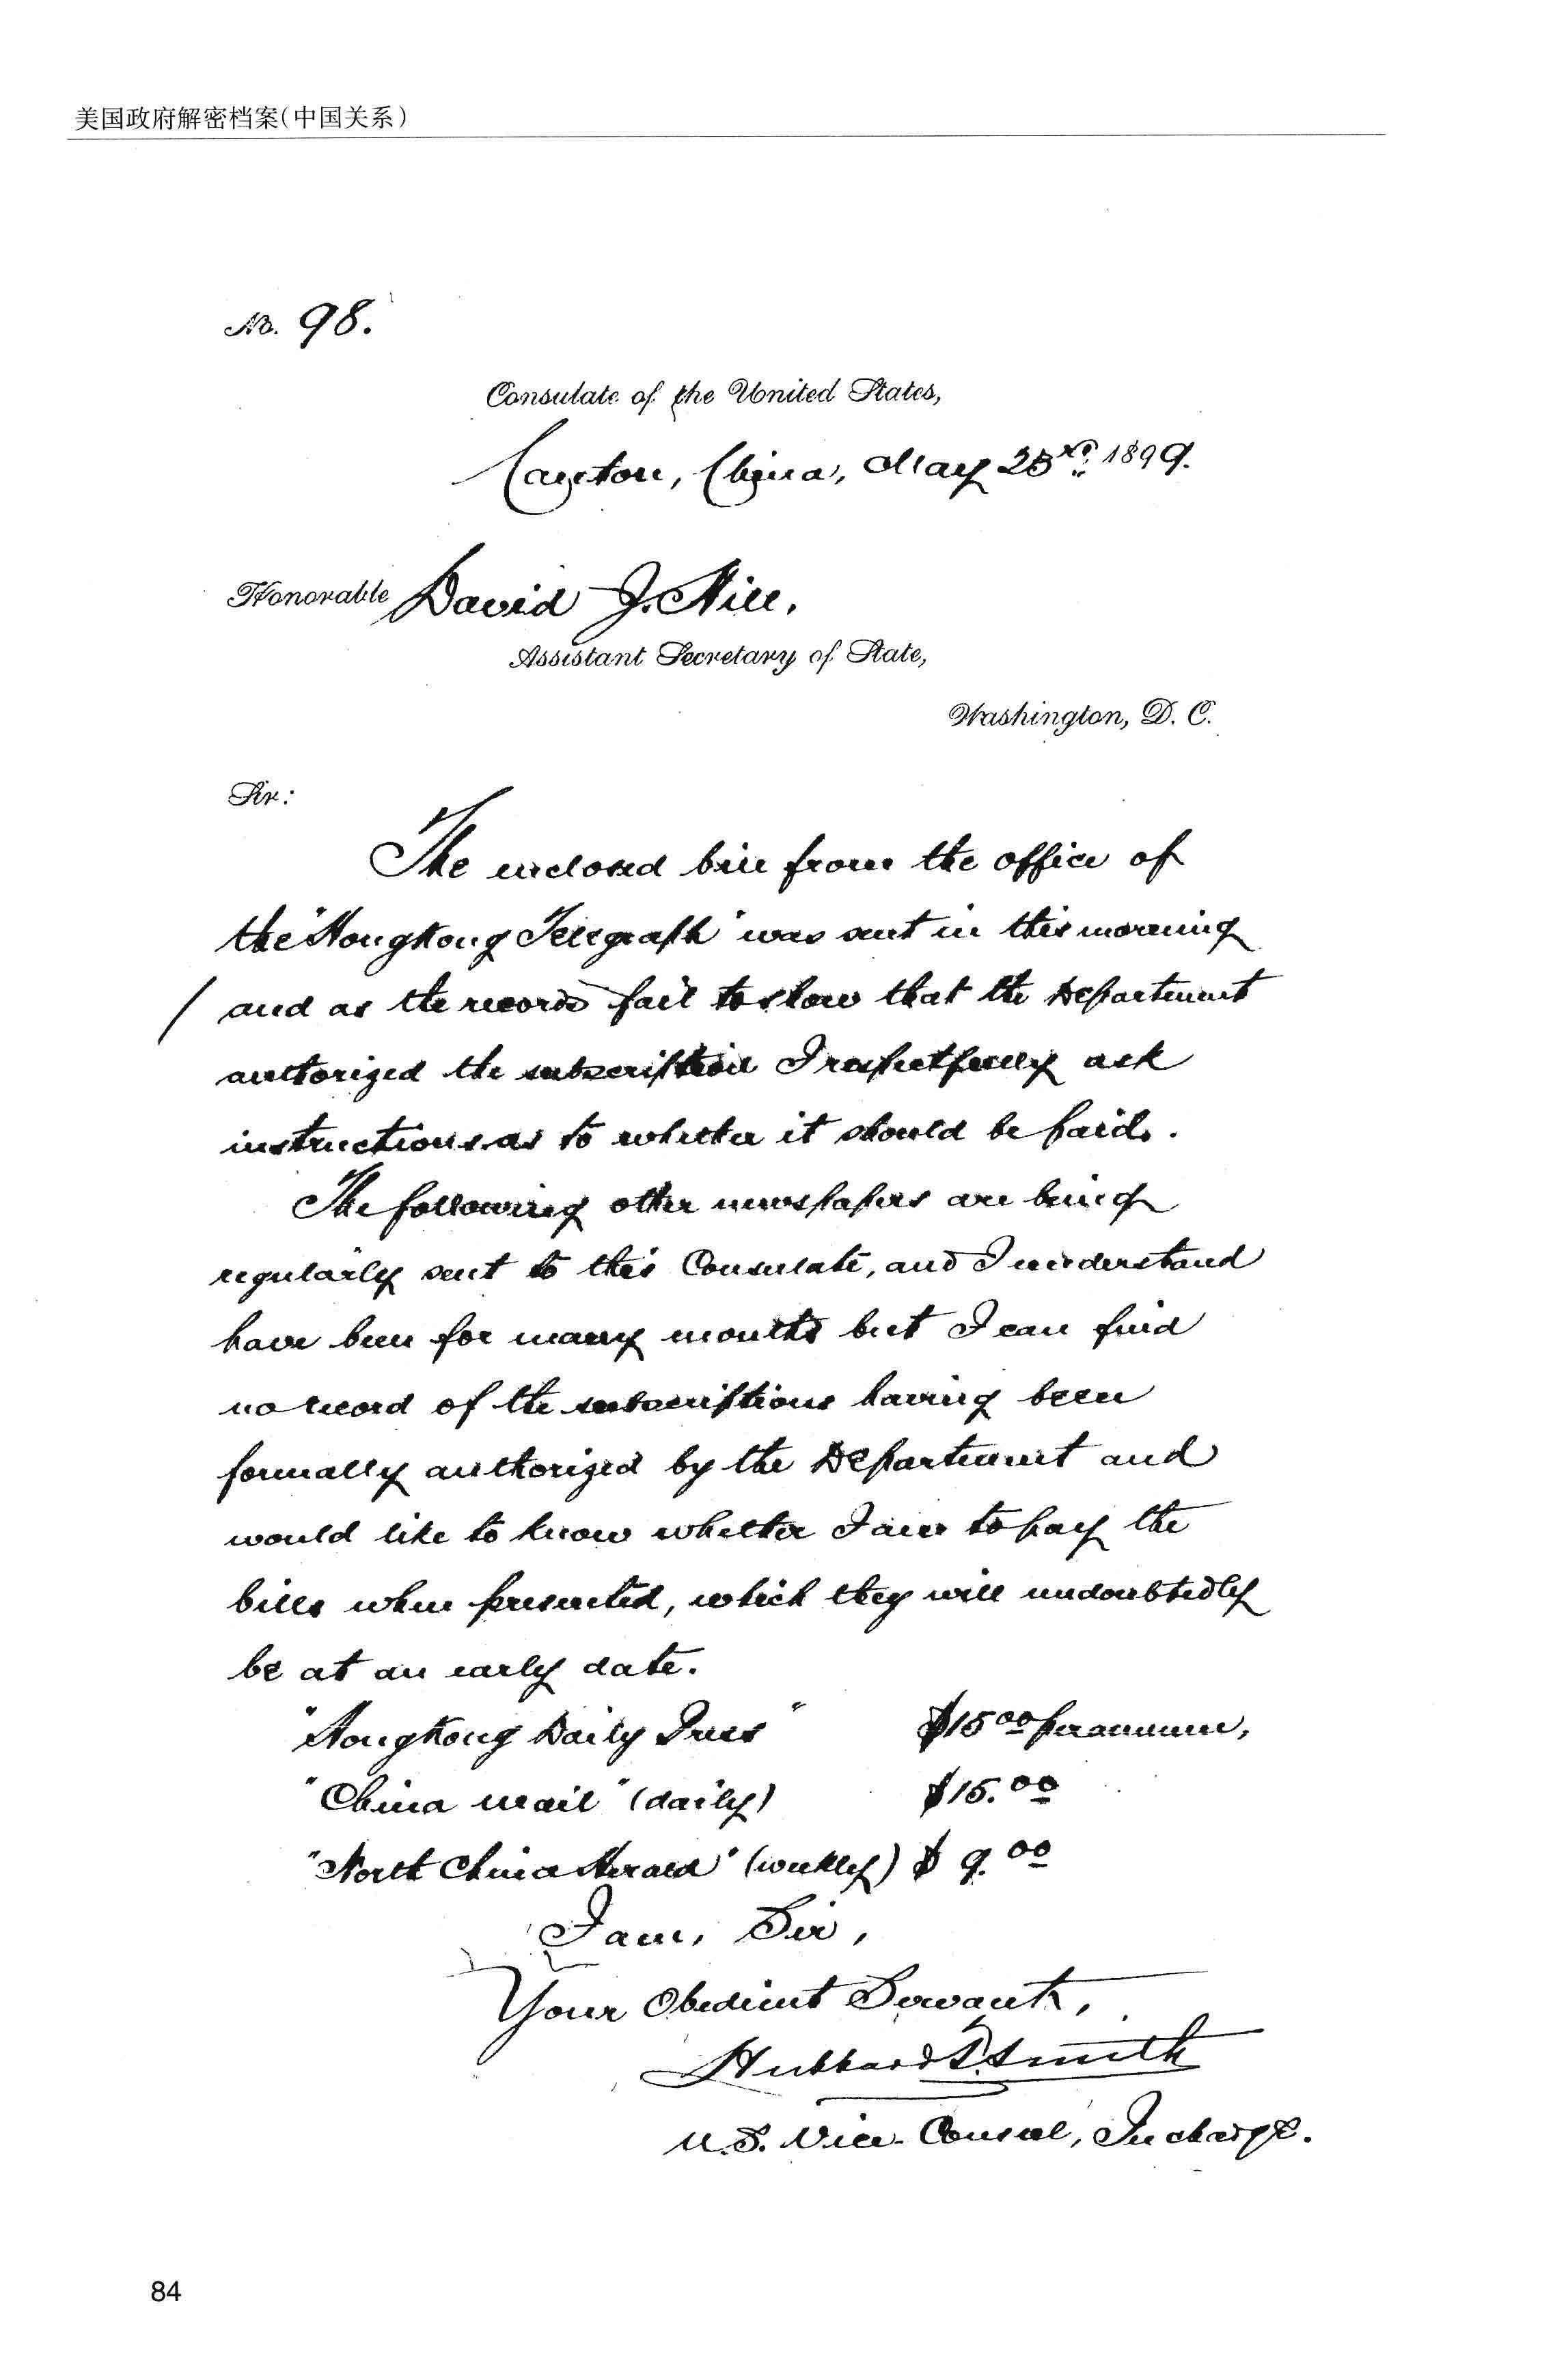 美国政府解密档案(中国关系)
No. 98.
Consulate of the United States,
Canton, China, May 23rd. 1899.
Honorable David J. Hill,
Assistant Secretary of State,
Washington, D. C.
Sir:
The enclosed bill from the office of
the "HongKong Telegraph" was sent in this morning
and as the records fail to show that the Department
authorized the subscription I respectfully ask
instructions as to whether it should be paid.
The following other newspapers are being
regularly sent to this Consulate, and I understand
have been for many months but I can find
no record of the subscriptions having been
formally authorized by the Department and
would like to know whether I am to pay the
bills when presented, which they will undoubtedly
be at an early date.
"HongKong Daily Press" $15.00 per annum,
"China Mail" (daily) $15.00
"North China Herald" (weekly) $ 9.00
I am, Sir,
Your Obedient Servant,
Hubbard T. Smith
U.S. Vice-Consul, In charge.
84